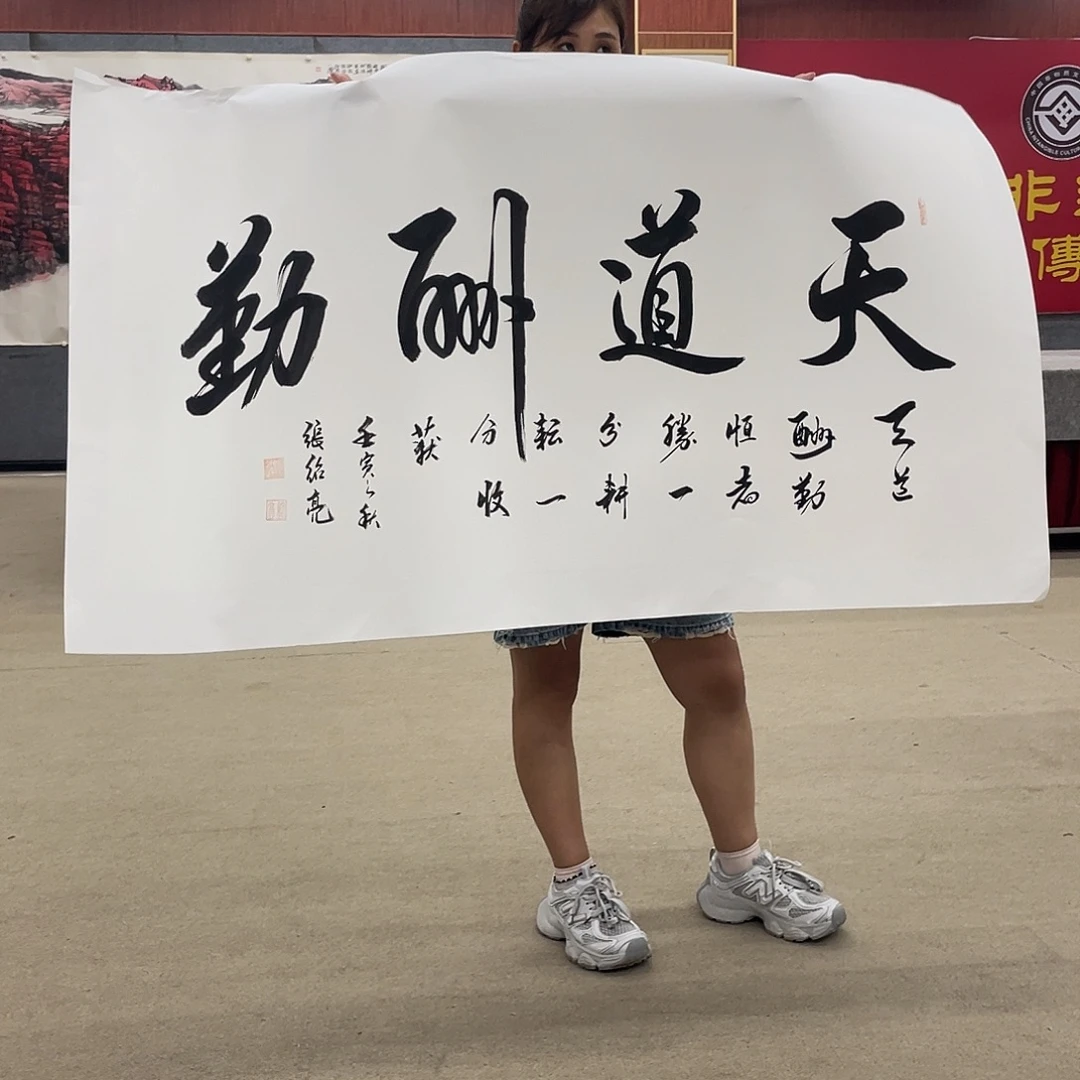 天道酬勤
天道
酬勤
恒者
勝一
分耕
耘一
分收
获
壬寅之秋
張绍亮
非
傳
CHINA INTANGIBLE CULTUR